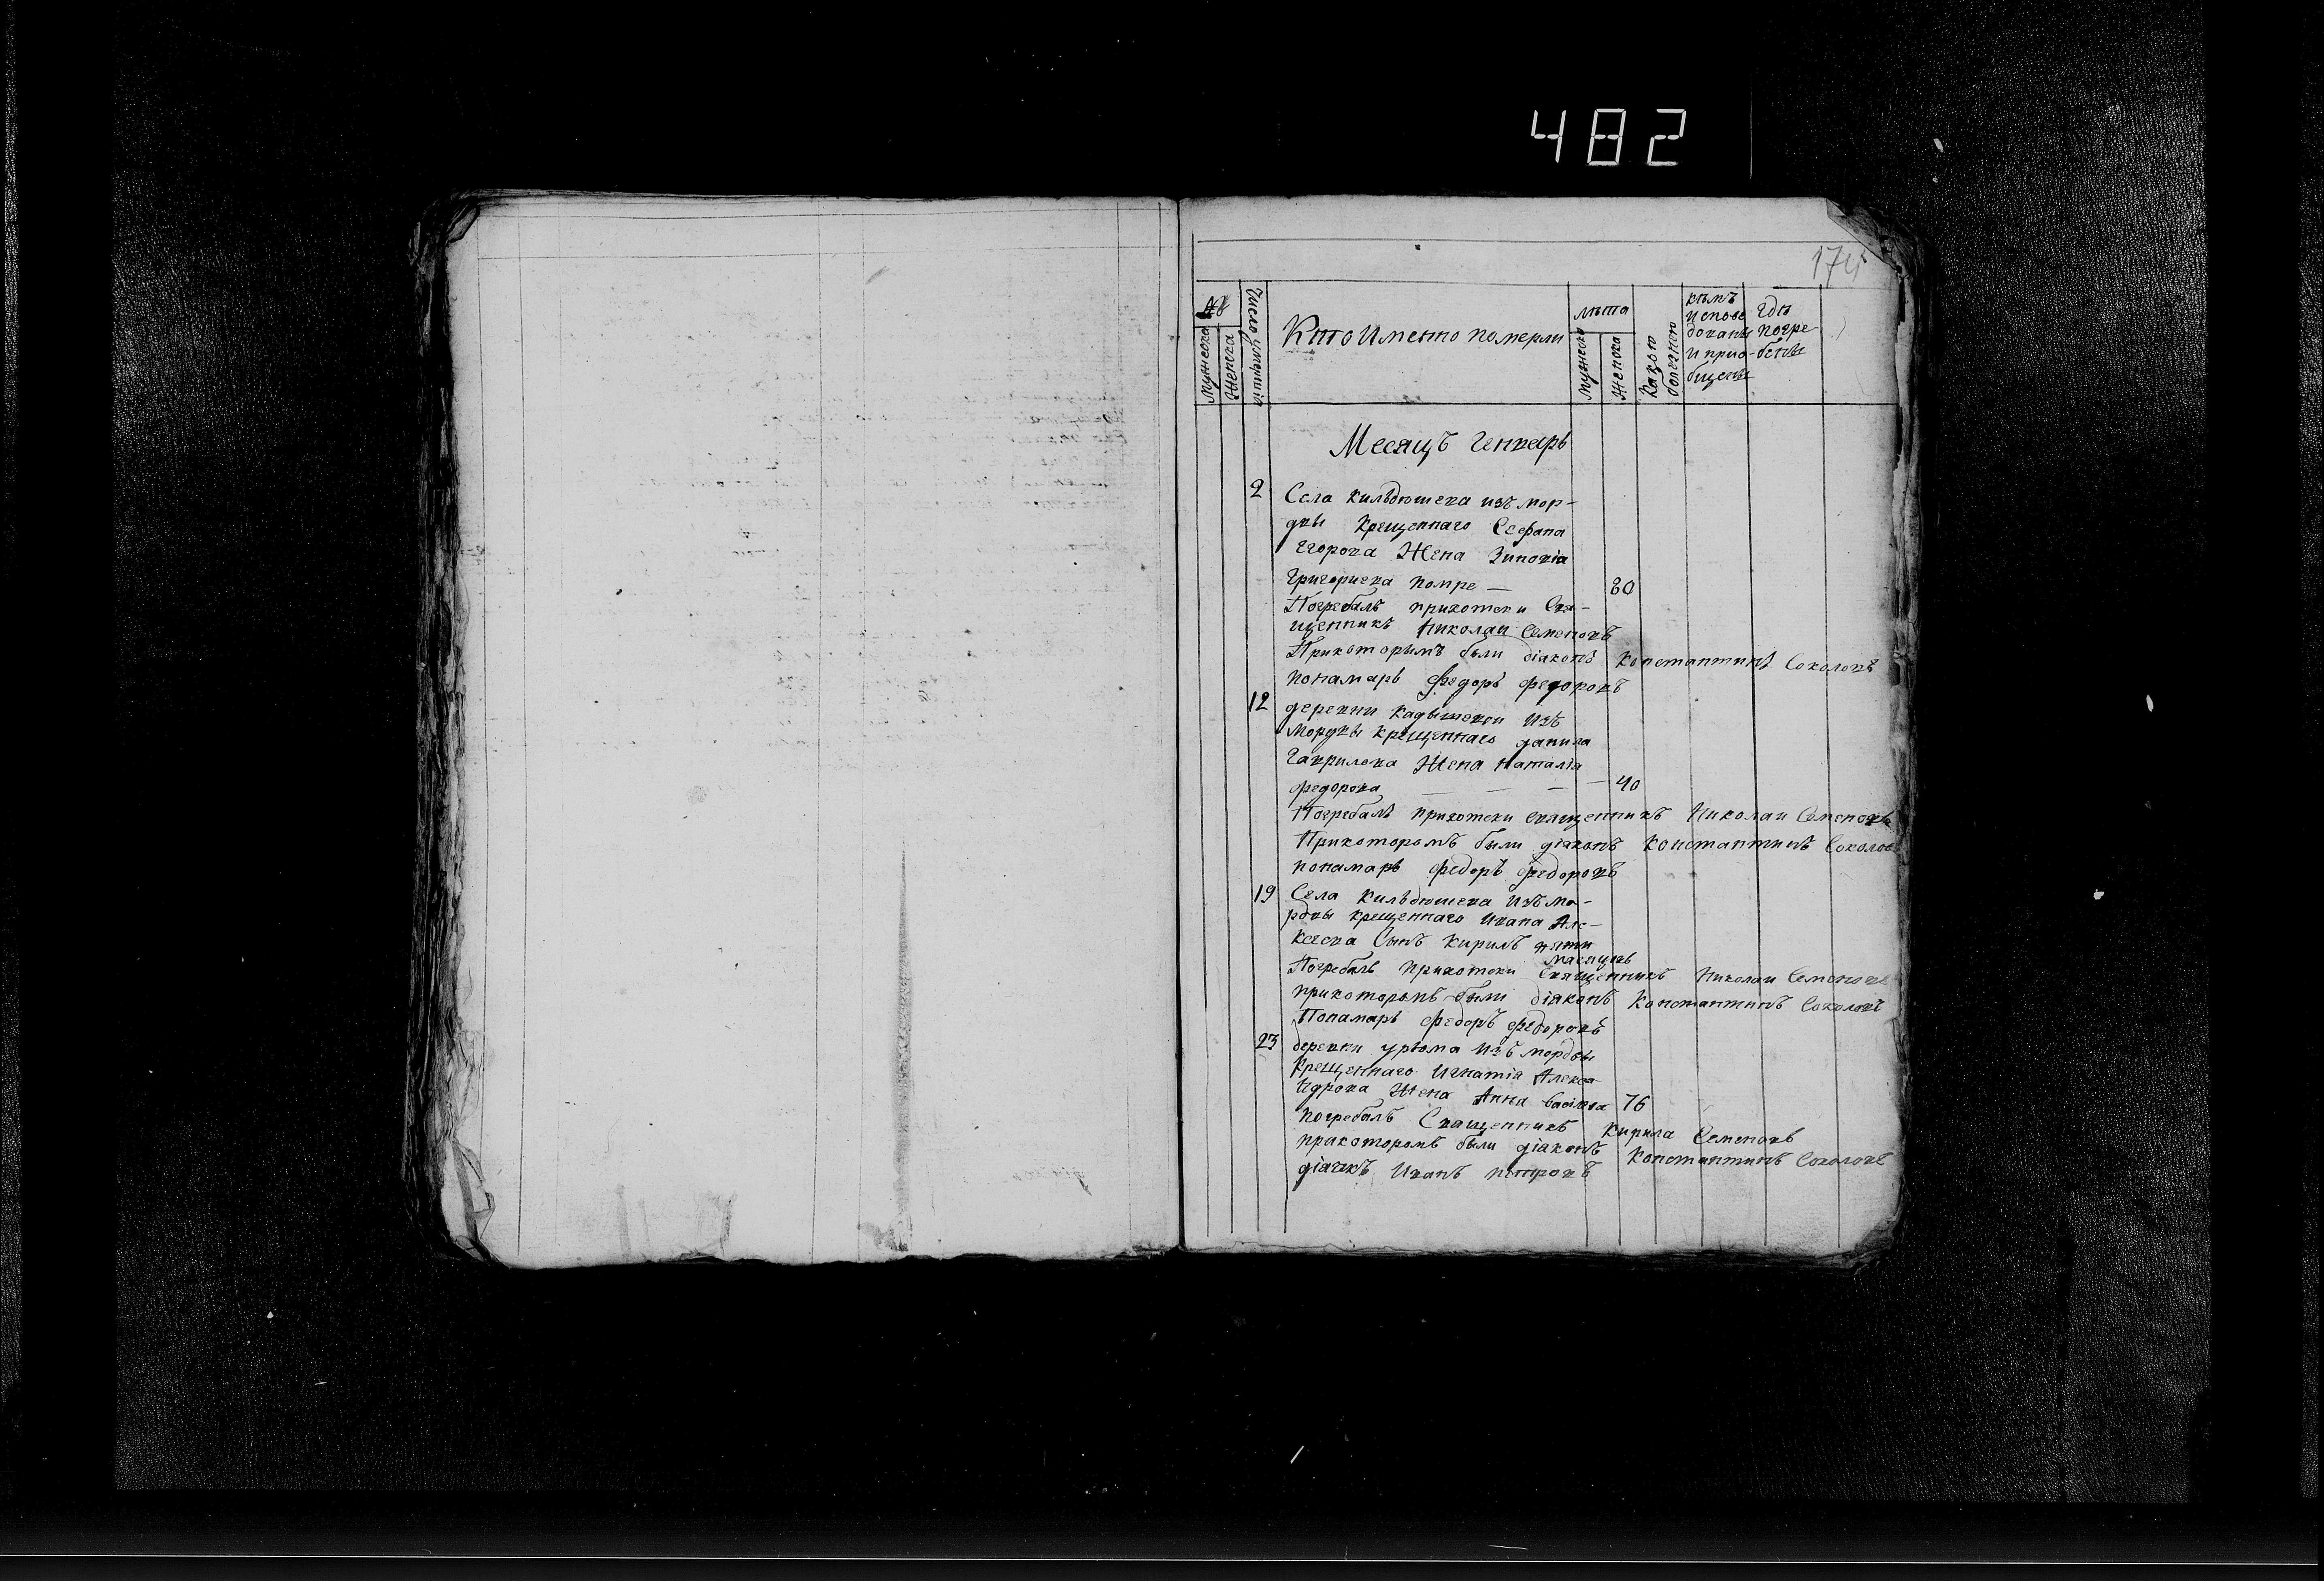 482
174
№
мужеска
Женска
Число умершихъ
Кто Имѣнно померли
лѣта
мужеска
женска
Какою болезнею
кѣмъ исповедованы и приобщены
гдѣ погребены
Месяцъ Генварь
2 Села Кильдюшева изъ мор-
двы Крещеннаго Стефана
Егорова Жена Зиновiа
Григориева помре — 80
Погребалъ приходски Свя-
щенникъ Николаи Семеновъ
Прикоторымъ были дiаконъ Константинъ Соколовъ
Понамарь Федоръ Федоровъ
12 деревни Кадышевои изъ
Мордвы Крещеннаго данила
Гаврилова Жена Наталiа
Федорова — — — — 40
Погребалъ приходски священникъ Николаи Семеновъ
Прикоторомъ были дiаконъ Константинъ Соколов
понамарь Федоръ Федоровъ
19 Села Кильдюшева изъ мо-
рдвы крещеннаго Ивана Але-
ксеева Сынъ Кирилъ пяти
месяцовъ
Погребалъ Приходски Священникъ Николаи Семеновъ
прикоторомъ были дiаконъ Константинъ Соколовъ
Понамарь Федоръ Федоровъ
23 деревни урюма изъ мордвы
Крещеннаго Игнатiя Алекса-
ндрова Жена Анна Васильева 76
погребалъ Священникъ Кирила Семеновъ
прикоторомъ были дiаконъ Константинъ Соколовъ
дiачкъ Иванъ петровъ